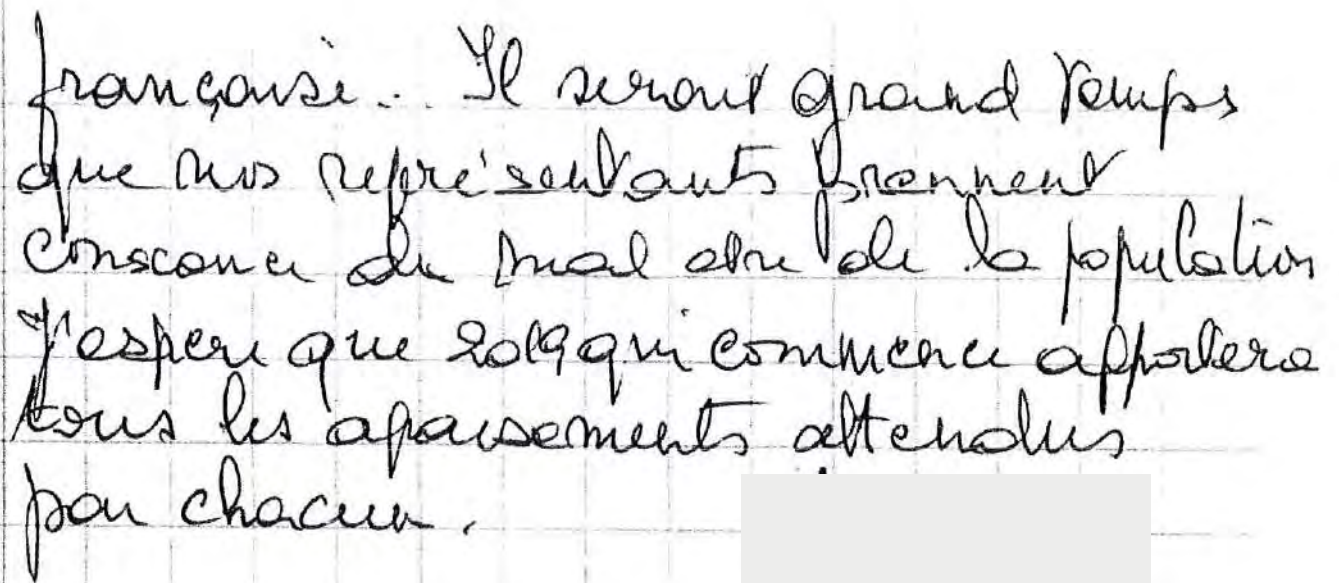 française.. Il serait grand temps
que nos représentants prennent
conscience du mal être de la population
J'espère que 2019 qui commence apportera
tous les apaisements attendus
par chacun.